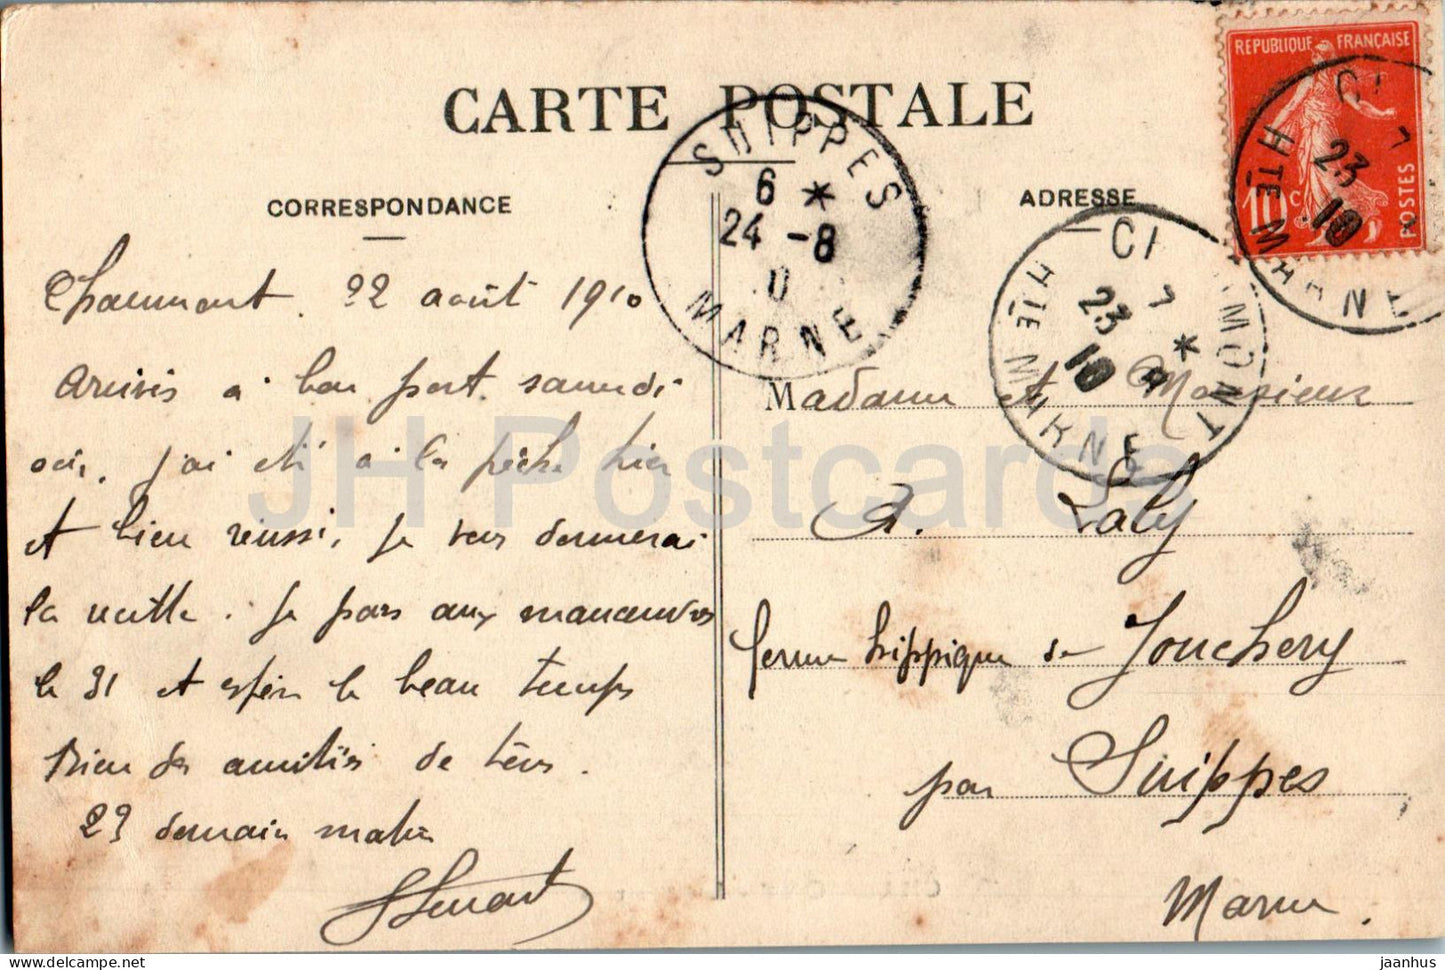 CARTE POSTALE
CORRESPONDANCE
Chaumont. 22 août 1910
Arrivés à bon port samedi
soir, j'ai été à la pêche hier
et bien réussi, je vous donnerai
la recette. Je pars aux manœuvres
le 31 et espère le beau temps
Bien des amitiés de tous.
23 demain matin
ADRESSE
SUIPPES
6 *
24 -8
MARNE
REPUBLIQUE FRANÇAISE
10 c
POSTES
23
10
HTE MARNE
23
10
HTE MARNE
Madame et Monsieur
A. Laly
ferme hippique de Jonchery
par Suippes
Marne.
JH Postcards
jaanhus.com
jaanhus